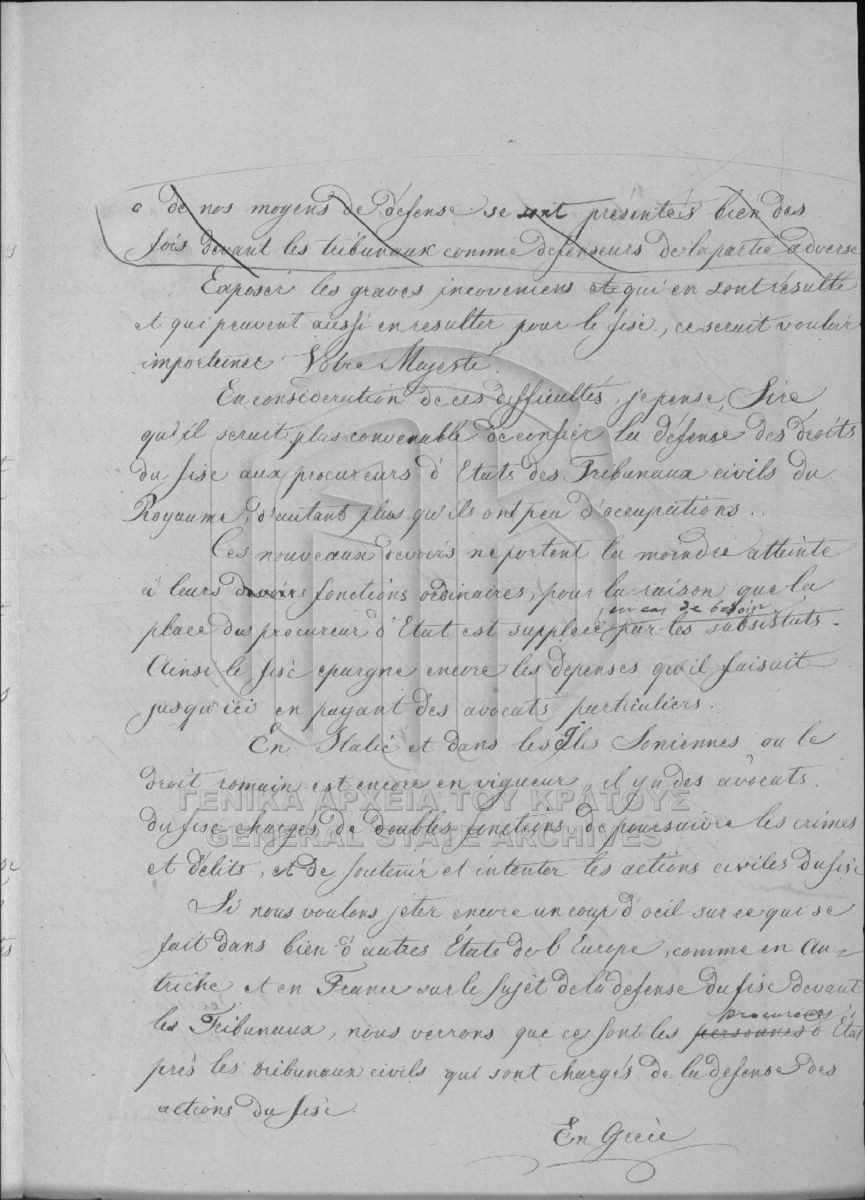 de nos moyens de défense se sont présentés bien des
fois devant les tribunaux comme defenseurs de la partie adverse
Exposer les graves inconveniens et qui en sont résulté
et qui peuvent aussi en resulter pour le fisc, ce serait vouloir
importuner Votre Majesté.
En consideration de ces difficultés, je pense, Sire
qu'il serait plus convenable de confier la défense des droits
du fisc aux procureurs d'Etats des Tribunaux civils du
Royaume, d'autant plus qu'ils ont peu d'occupations.
Ces nouveaux devoirs ne portent la moindre atteinte
à leurs devoirs fonctions ordinaires, pour la raison que la
en cas de besoin
place du procureur d'Etat est suppléée par les subsistuts.
Ainsi le fisc epargne encore les depenses qu'il faisait
jusqu'ici en payant des avocats particuliers.
En Italie et dans les Iles Ioniennes ou le
droit romain est encore en vigueur, il y a des avocats
ΓΕΝΙΚΑ ΑΡΧΕΙΑ ΤΟΥ ΚΡΑΤΟΥΣ
du fisc chargés de doubles fonctions, de poursuivre les crimes
GENERAL STATE ARCHIVES
et délits, et de soutenir et intenter les actions civiles du fisc
Si nous voulons jéter encore un coup d'oeil sur ce qui se
fait dans bien d'autres États de l'Europe, comme en Au-
triche et en France sur le sujet de la defense du fisc devant
procureurs
les Tribunaux, nous verrons que ce sont les personnes d'État
près les tribunaux civils qui sont chargés de la defense des
actions du fisc.
En Grèce